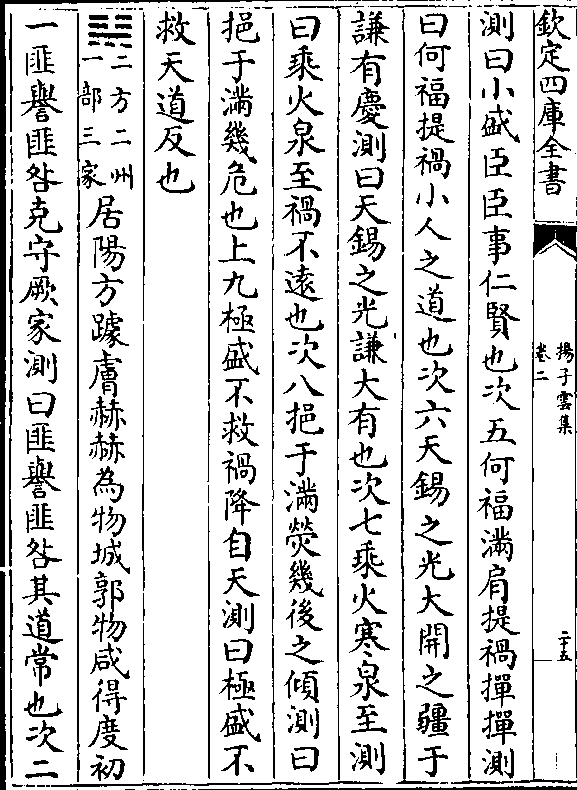 欽定四庫全書
揚子雲集
卷二
二十五
測曰小盛臣臣事仁賢也次五何福滿肩提禍撣撣測
曰何福提禍小人之道也次六天錫之光大開之疆于
謙有慶測曰天錫之光謙大有也次七乘火寒泉至測
曰乘火泉至禍不逺也次八挹于滿熒幾後之傾測曰
挹于滿幾危也上九極盛不救禍降自天測曰極盛不
救天道反也
𝌭二方二州
一部三家居陽方躆膚赫赫為物城郭物咸得度初
一匪譽匪咎克守厥家測曰匪譽匪咎其道常也次二